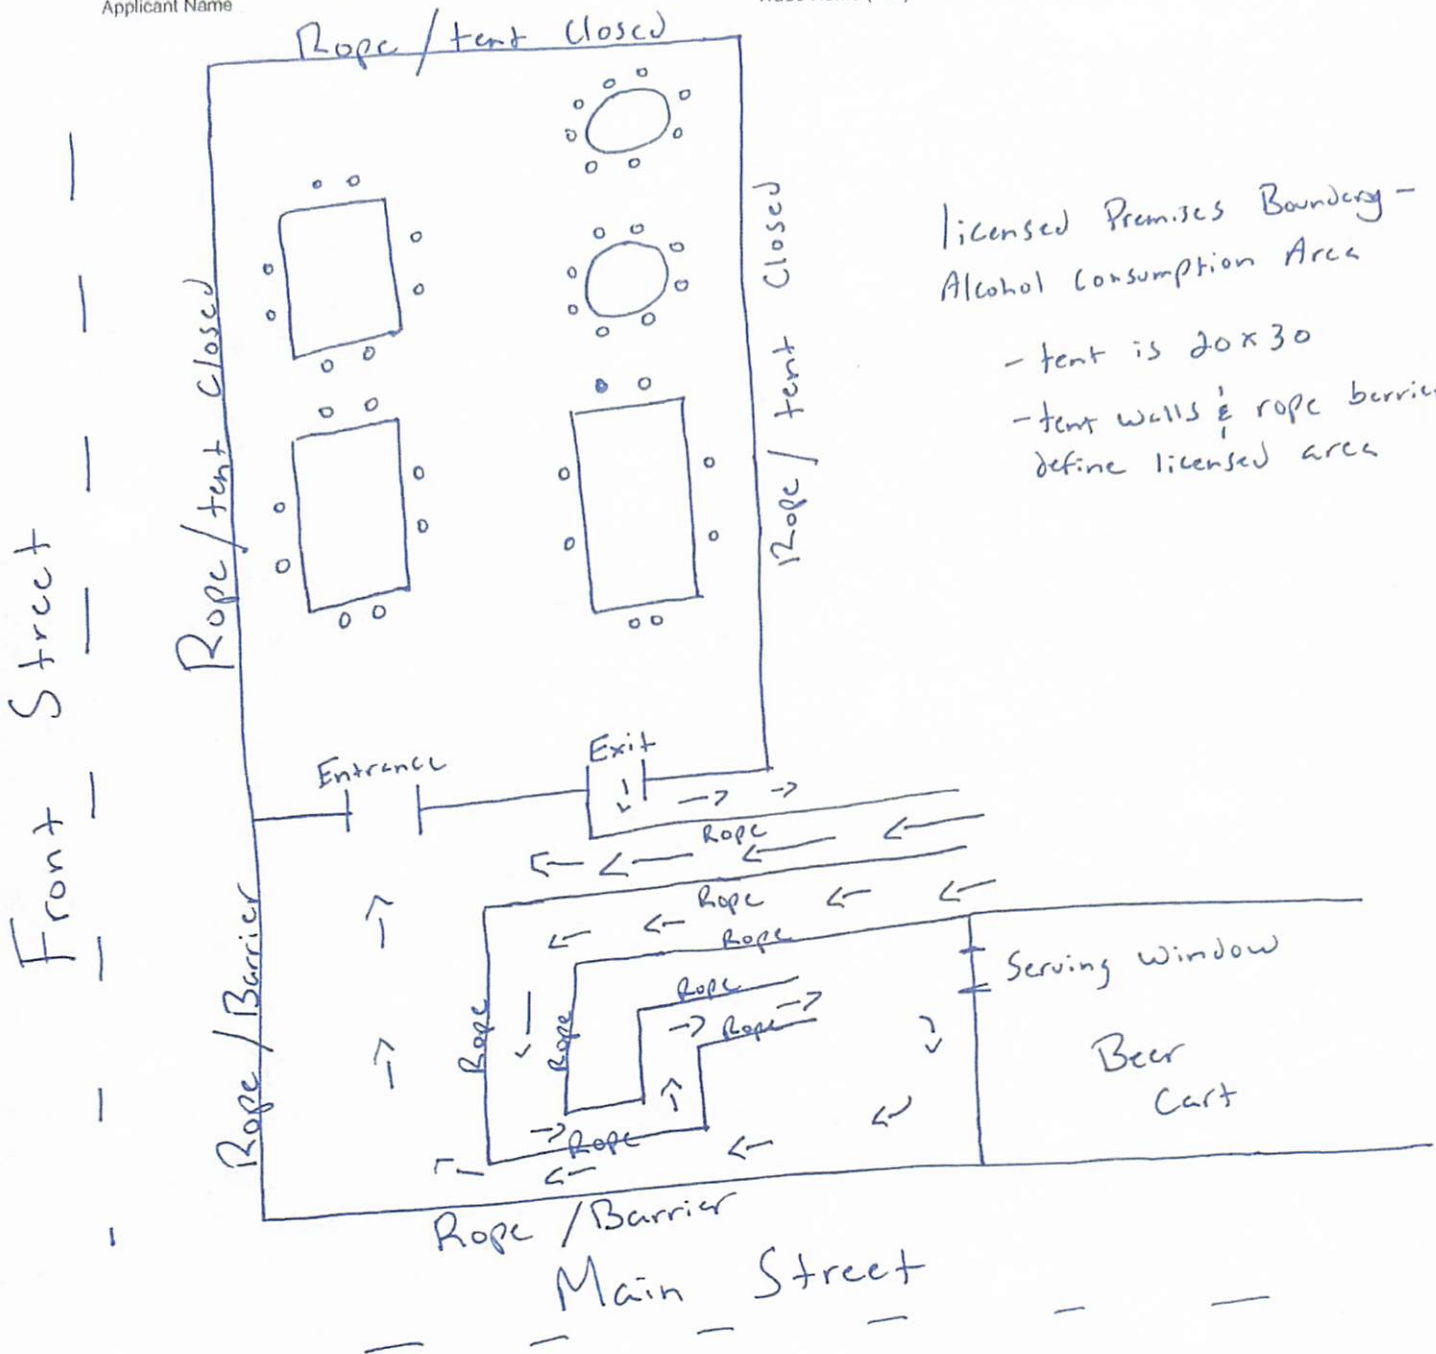 Applicant Name
Rope / tent Closed
Rope / tent Closed
Rope / tent Closed
licensed Premises Boundary -
Alcohol Consumption Area
- tent is 20 x 30
- tent walls & rope
define licensed area
Front Street
Entrance
Exit
Rope
Rope
Rope
Rope
Rope
Rope
Rope
Rope
Serving Window
Beer
Cart
Rope / Barrier
Rope / Barrier
Main Street